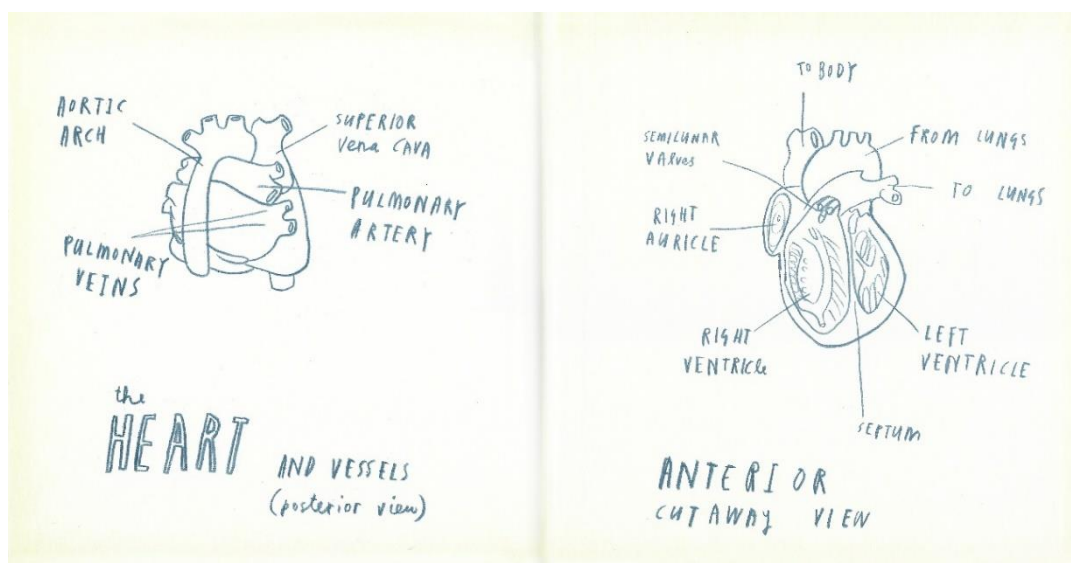 AORTIC
ARCH
SUPERIOR
Vena CAVA
PULMONARY
ARTERY
PULMONARY
VEINS
the
HEART
AND VESSELS
(posterior view)
TO BODY
SEMILUNAR
VAlves
FROM LUNGS
TO LUNGS
RIGHT
AURICLE
RIGHT
VENTRICle
LEFT
VENTRICLE
SEPTUM
ANTERIOR
CUTAWAY VIEW